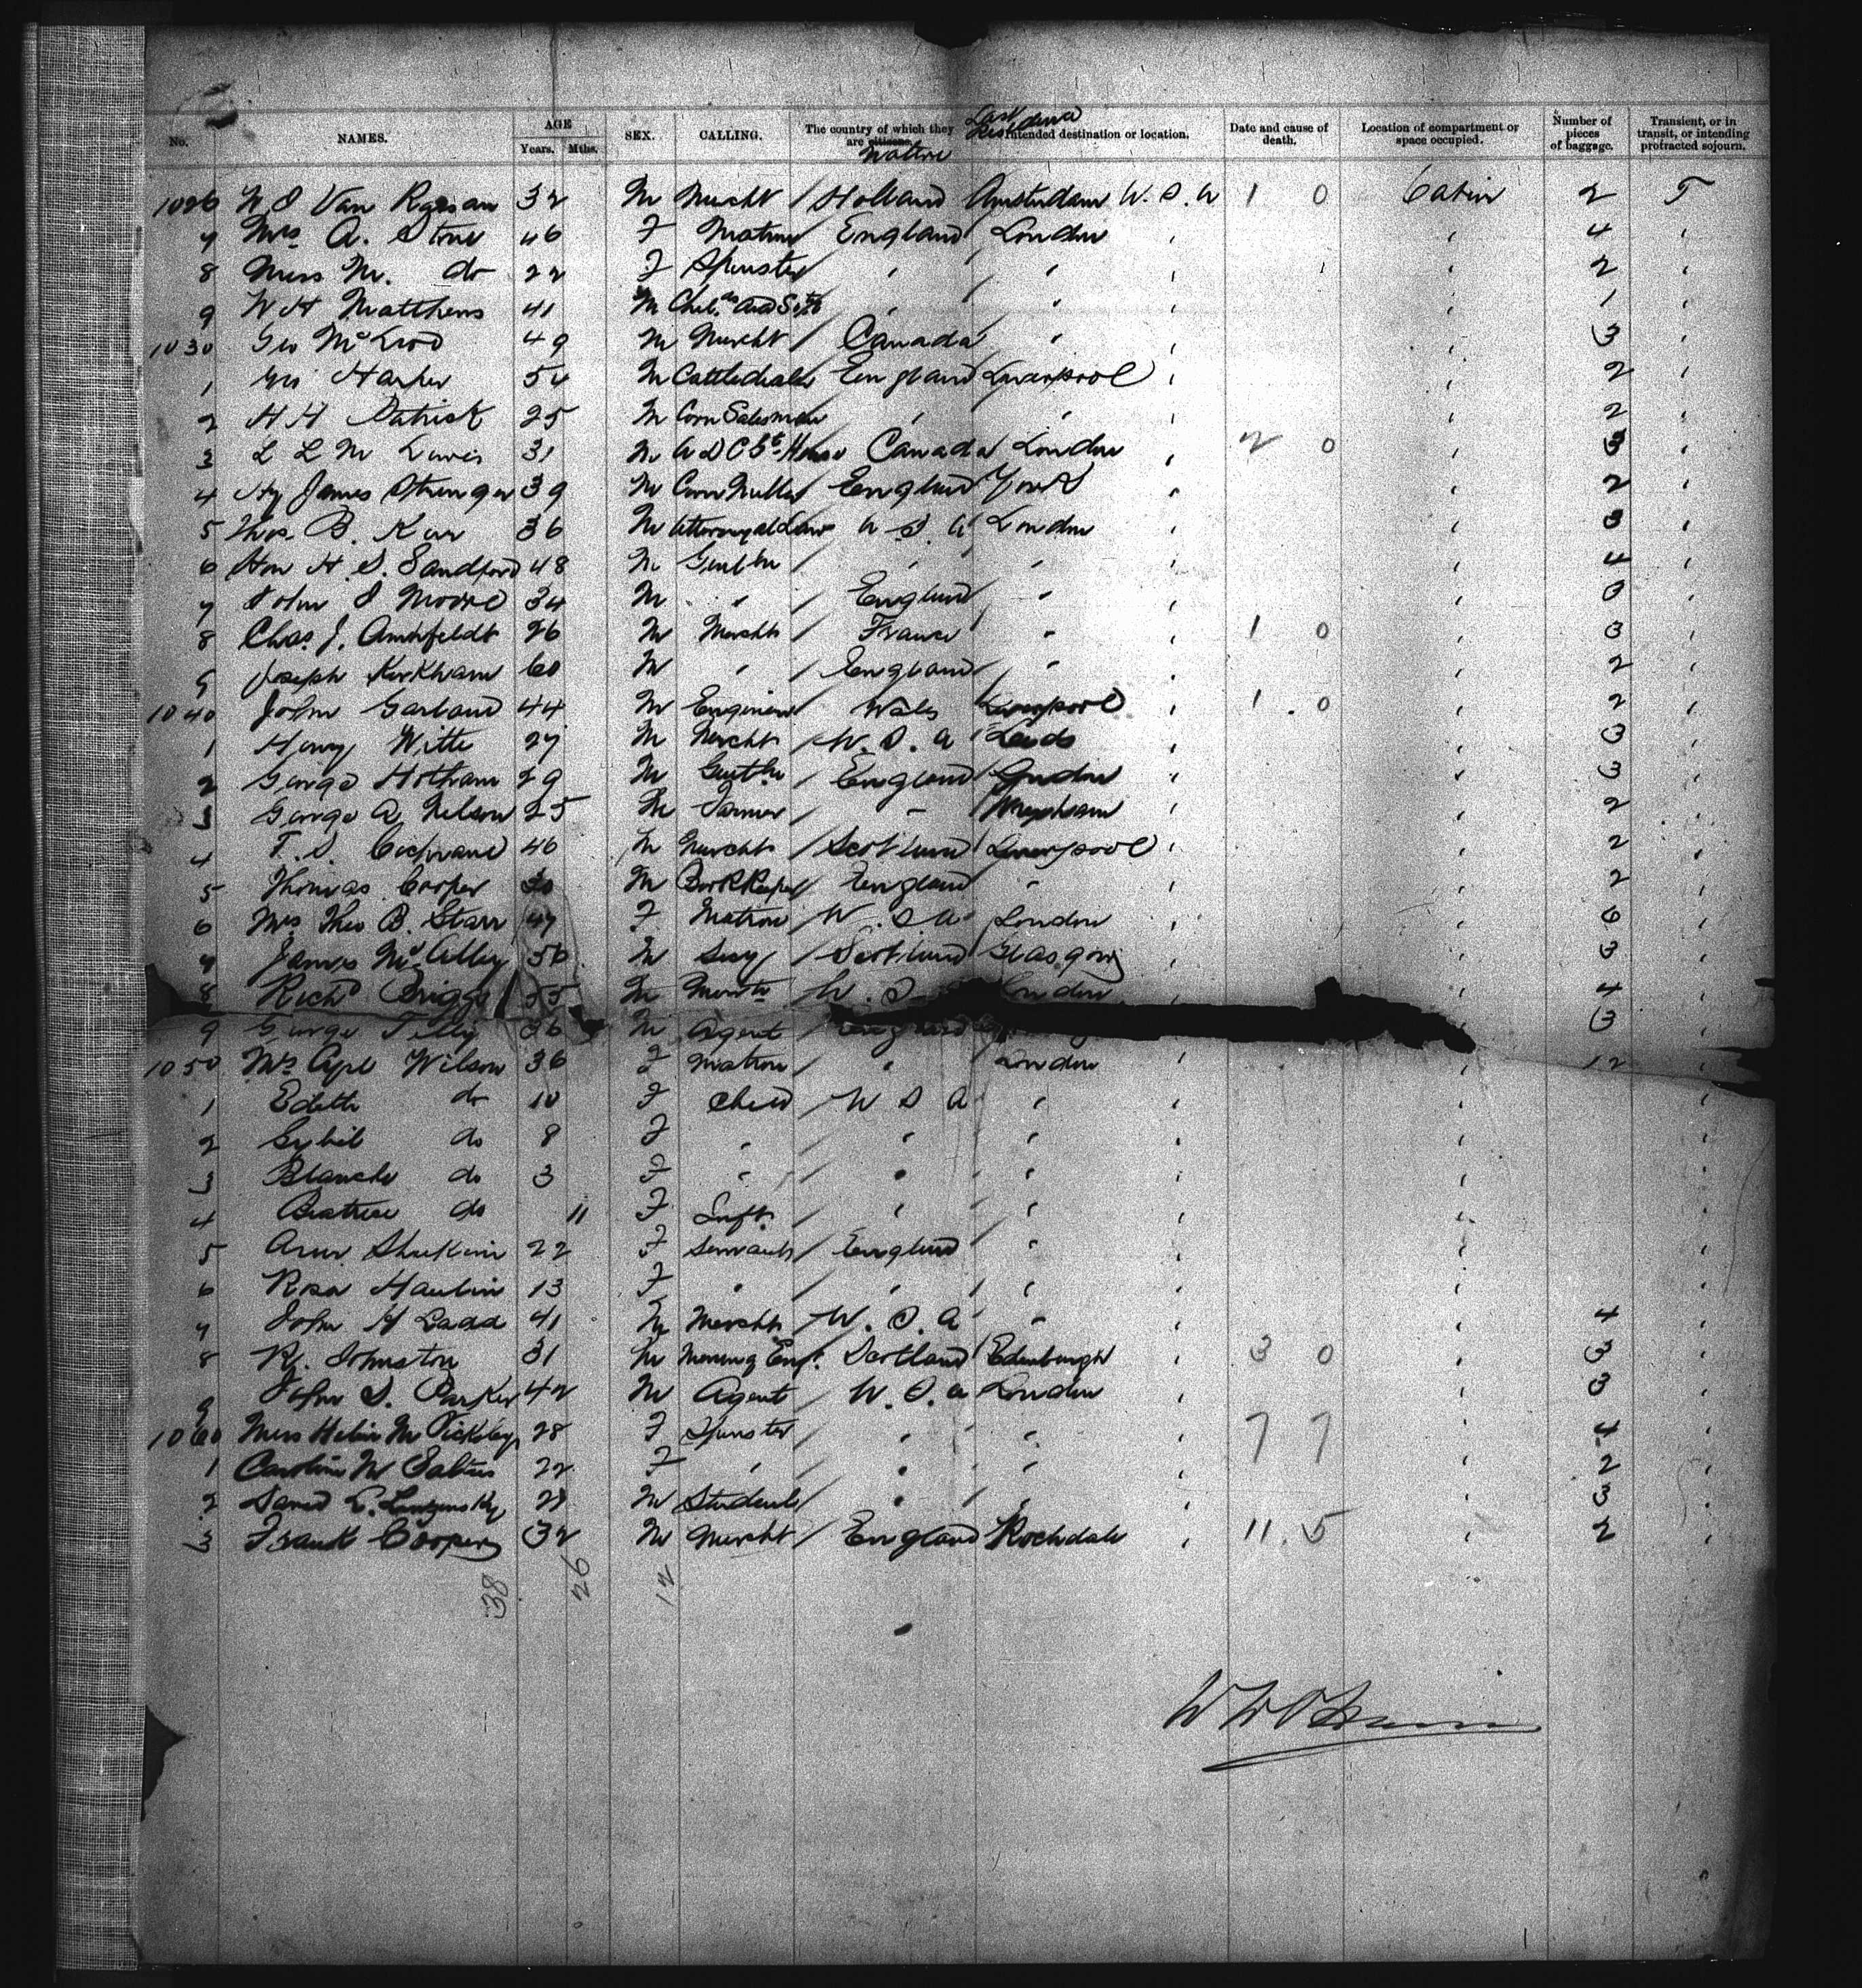 No. NAMES. AGE Years. Mths. SEX. CALLING. The country of which they are citizens. Native Last Residence Intended destination or location. Date and cause of death. Location of compartment or space occupied. Number of pieces of baggage. Transient, or in transit, or intending protracted sojourn.
1026 Van 32 M Mercht / Holland Amsterdam U.S.A 1 0 Cabin 2 T
7 Mrs A. Stone 46 F Matron England London " " 4 "
8 Miss M. do 22 F Spinster " " " " 2 "
9 W H Matthews 41 M " " " " 1 "
1030 Geo McLeod 49 M Mercht / Canada " " " 3 "
1 Geo Harker 54 M Cattledealer England Liverpool " " 2 "
2 H H Patrick 25 M Corn Salesman " " " " 2 "
3 L L M Lewis 31 M Canada London " 2 0 " 3 "
4 Hy James Stringer 39 M Corn Miller England York " " 2 "
5 Thos. B. Kerr 36 M Attorney at Law U S. A London " " 3 "
6 Hon H. S. Sandford 48 M Gentln " " " " 4 "
7 John J Moore 34 M " / England " " " 3 "
8 Chas. J. 26 M Mercht / France " " 1 0 " 3 "
9 Joseph Kirkham 60 M " / England " " " 2 "
1040 John Garland 44 M Engineer Wales Liverpool " 1 . 0 " 2 "
1 Henry Witte 27 M Mercht / U. S. A Leeds " " 3 "
2 George Hotham 29 M Gentln / England London " " 3 "
3 George A Nelson 25 M Farmer / " Wrexham " " 2 "
4 T. S. Cochrane 46 M Mercht / Scotland Liverpool " " 2 "
5 Thomas Cooper 30 M BookKeeper / England " " " 2 "
6 Mrs Theo B. Starr 47 F Matron U. S A London " " 6 "
7 James 56 M / Scotland Glasgow " " 3 "
8 Richd Briggs 55 M Mercht / U. S London " " 4
9 George Tilly 36 M Agent England " 3
1050 Mrs Wilson 36 F Matron " London " " 12 "
1 Edith do 10 F Child / U S A " " " "
2 Sybil do 8 F " / " " " " "
3 Blanche do 3 F " / " " " " "
4 Beatrice do 11 F Inft. / " " " " "
5 Ann 22 F Servant / England " " " "
6 Rosa 13 F " / " " " " "
7 John H Ladd 41 M Mercht / U. S. A " " " 4 "
8 R. Johnston 31 M Mining Engr. Scotland Edinburgh " 3 0 " 3 "
9 John S. Parker 42 M Agent / U. S. A London " " 3 "
1060 Miss Helen M 28 F Spinster / " " " 7 7 " 4 "
1 Caroline W 22 F " / " " " " 2 "
2 27 M Student / " " " " 3 "
3 Frank Cooper 32 M Mercht / England Rochdale " 11.5 " 2 "
38 26 12